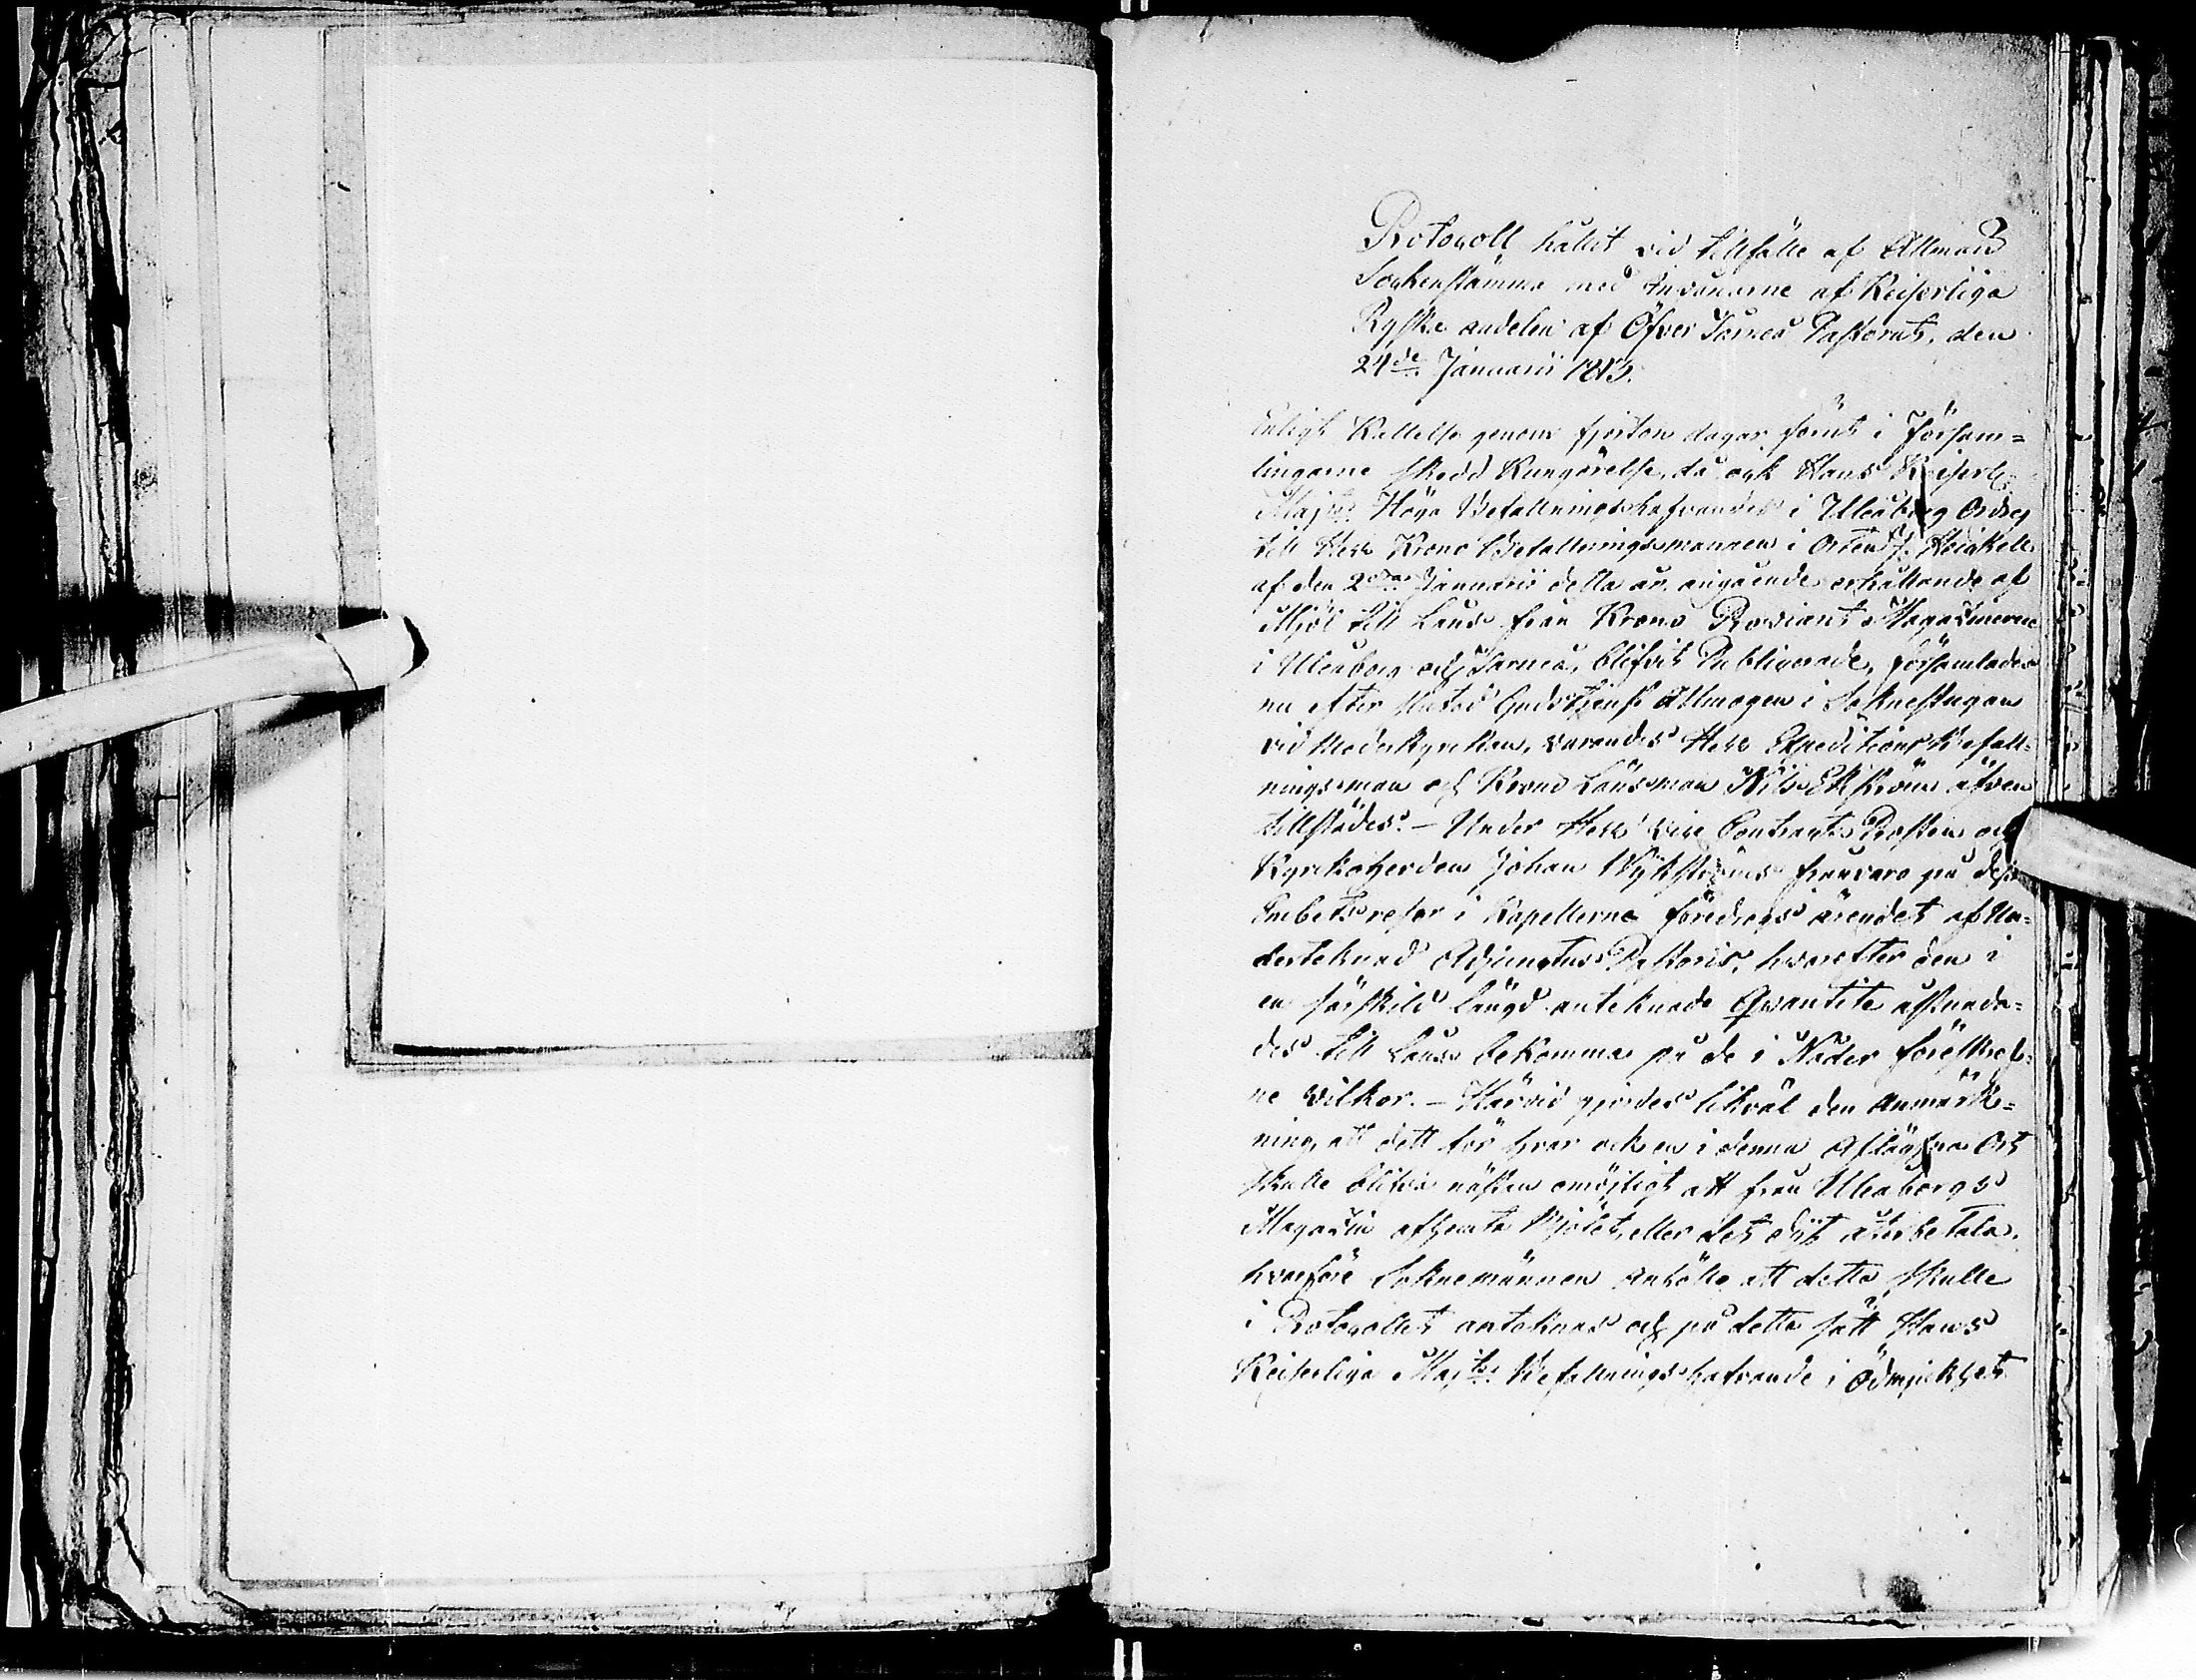 Protocoll hållit vid tillfälle af Allmän
Sockenstämma med Invånarne af Keiserliga
Ryska andelen af Öfver Torneå Pastorat, den
24de Januarii 1813.
Enligt Kallelse genom fjorton dagar förut i Försam=
lingarne skedd Kungörelse, då ock Hans Keiserl.
Maj:ts Höga Befallningshafvandes i Uleåborg Ordres
till Herr Krono Befallningsmannen i Orten J. Heickell
af den 2dra Januarii detta år, angående erhållande af
Mjöl till Låns från Krono Proviant Magasinerne
i Uleåborg och Torneå, blifvit Publicerade, församlades
nu efter slutad Gudstjenst Allmogen i Soknestugan
vid Moderkyrkan, varandes Herr Expeditions Befall=
ningsman och Krono Länsman Nils Ekström äfven
tillstädes. – Under Herr Vice Contracts Prosten och
Kyrkoherden Johan Wykströms frånvaro på dess
Embets resor i Kapellerne föredrogs ärendet af Un=
dertecknad Adjunctus Pastoris, hvarefter den i
en särskild Längd antecknade Qvantite åstunda=
des till Låns bekomma på de i Nåder föreskref=
ne vilkor. – Härvid gjordes likväl den Anmärk=
ning, att dett för hvar och en i denna Aflägsna Ort
skulle blifva nästan omöjligt att från Uleåborgs
Magasin afhemta Mjölet, eller det dit återbetala,
hvarföre Soknemännen anhöllo att detta skulle
i Protocollet antecknas och på detta sätt Hans
Keiserliga Maj:ts Befallningshafvande i Ödmjukhet